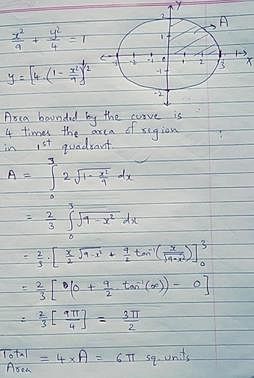 Y
2
A
1
-3 -2 -1 0 1 2 3 X
-1
-2
x²/9 + y²/4 = 1
y = [4·(1 - x²/9)]^(1/2)
Area bounded by the curve is
4 times the area of region
in 1st quadrant.
A = ∫₀³ 2√(1 - x²/9) dx
= 2/3 ∫₀³ √(9-x²) dx
= 2/3 · [x/2 √(9-x²) + 9/2 tan⁻¹(x/√(9-x²))]₀³
= 2/3 [(0 + 9/2 tan⁻¹(∞)) - 0]
= 2/3 [9π/4] = 3π/2
Total Area = 4 × A = 6π sq. units